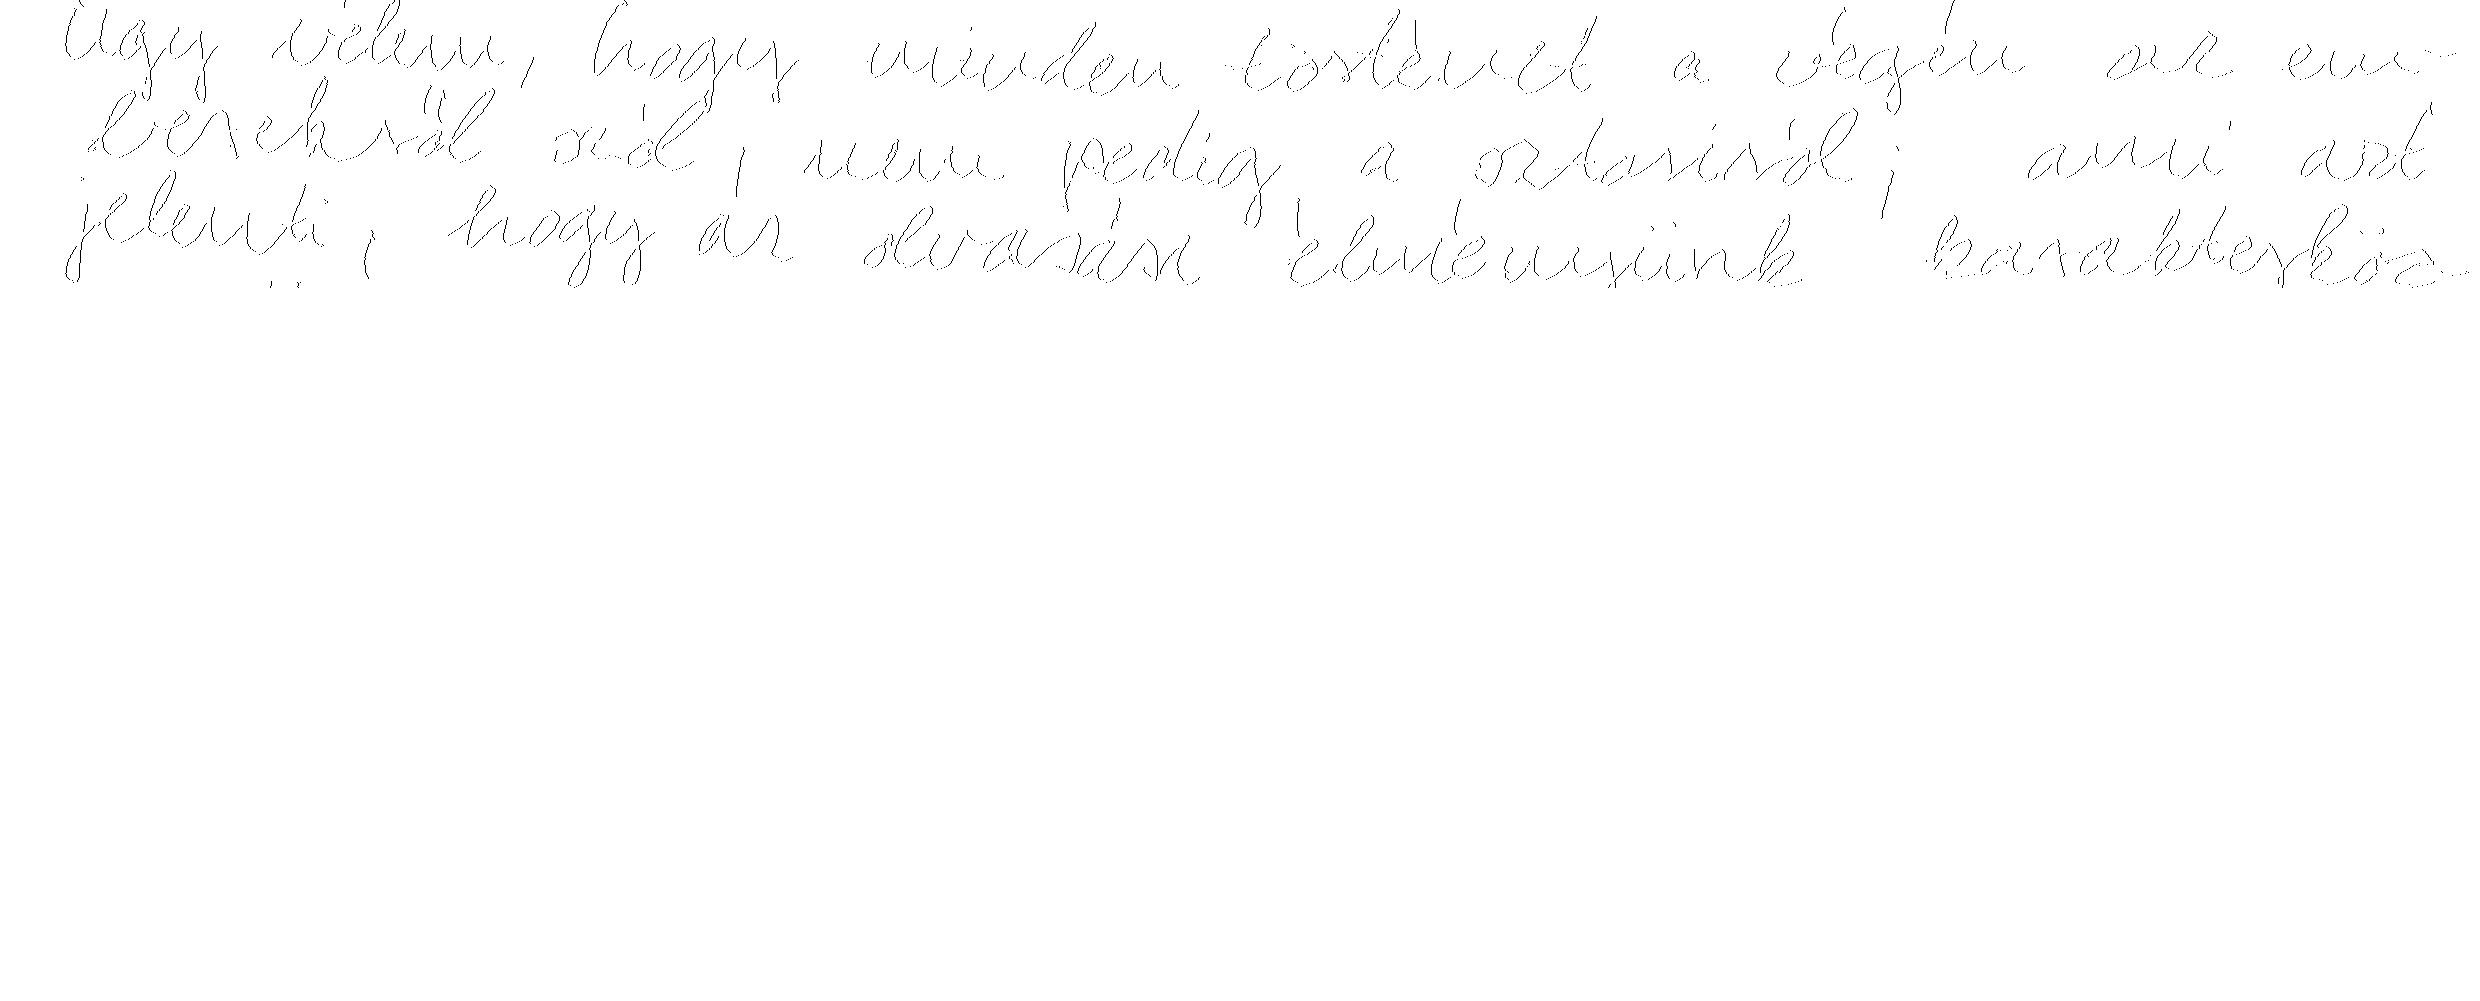 Úgy vélem, hogy minden történet a végén az em-
berekről szól, nem pedig a sztoriról; ami azt
jelenti, hogy az olvasási élményünk karakterköz-